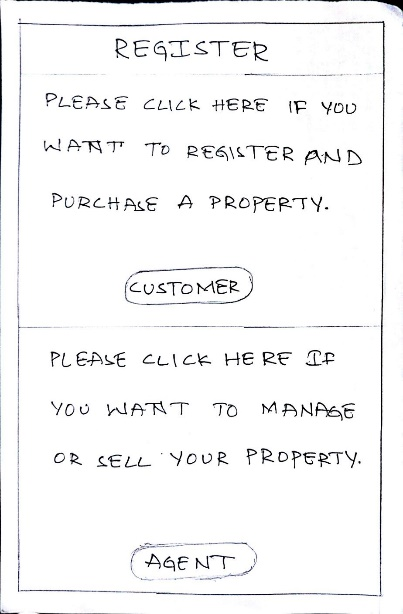 REGISTER
PLEASE CLICK HERE IF YOU
WANT TO REGISTER AND
PURCHASE A PROPERTY.
CUSTOMER
PLEASE CLICK HERE IF
YOU WANT TO MANAGE
OR SELL YOUR PROPERTY.
AGENT